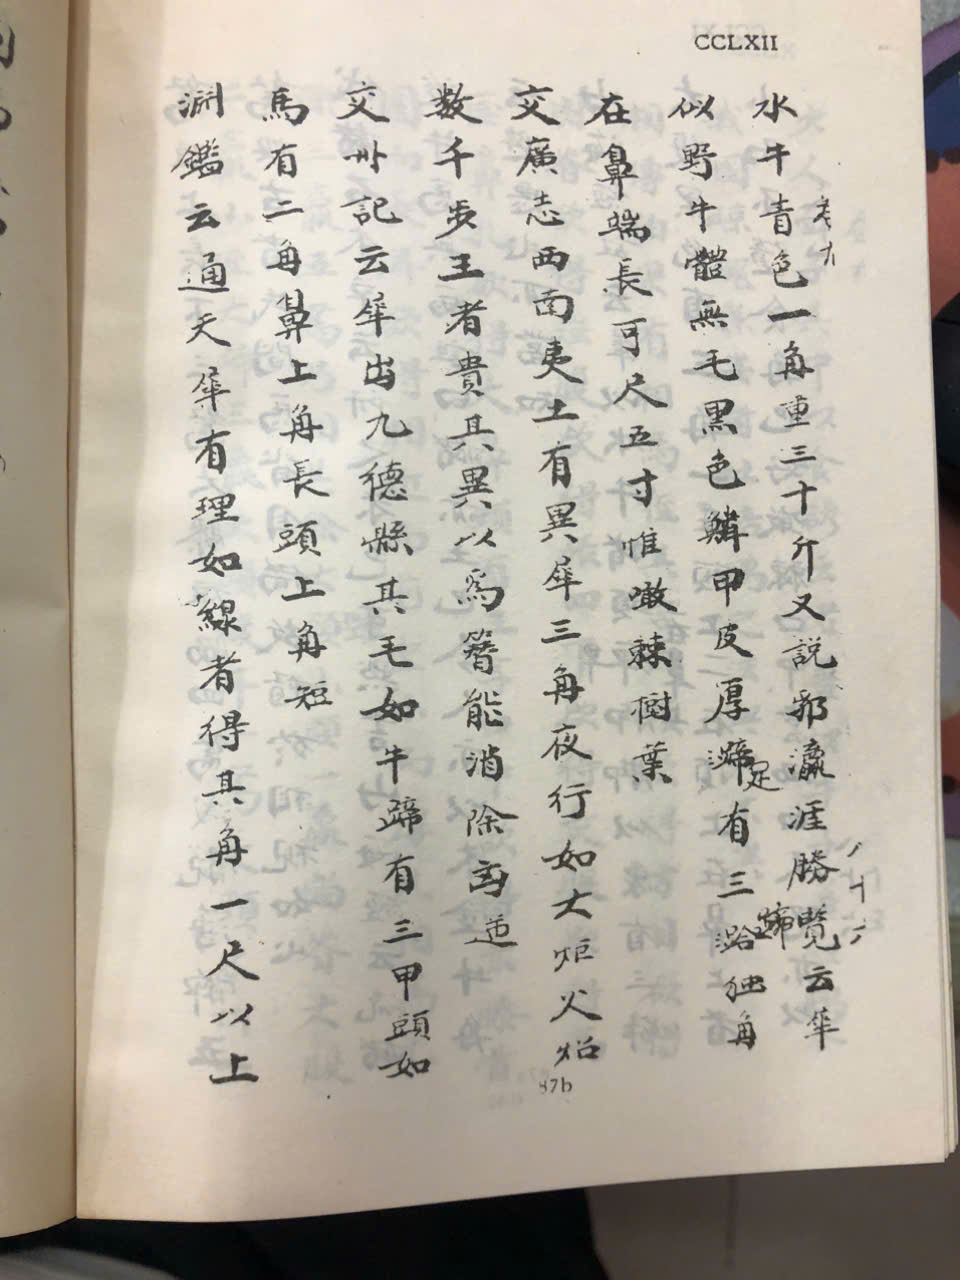 CCLXII
水牛青色一角重三十斤又説郛瀛涯勝覽云犀
卷九
似野牛體無毛黑色鱗甲皮厚蹄有三跲独角
定
蹄
在鼻端長可尺五寸惟噉棘樹葉
交廣志西南夷土有異犀三角夜行如大炬火炤
数千步王者貴其異以為簪能消除凶逆
交州記云犀出九德縣其毛如牛蹄有三甲頭如
馬有二角鼻上角長頭上角短
淵鑑云通天犀有理如線者得其角一尺以上
87b